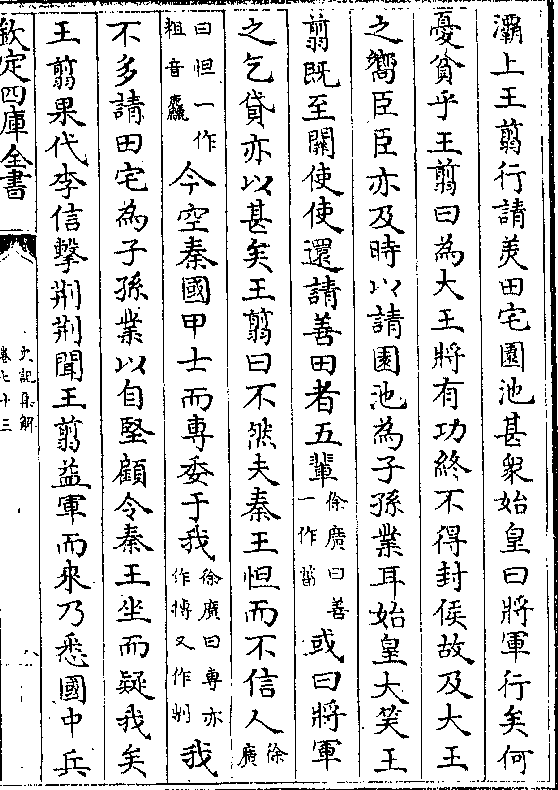 灞上王翦行請美田宅園池甚衆始皇曰將軍行矣何
憂貧乎王翦曰為大王將有功終不得封侯故及大王
之嚮臣臣亦及時以請園池為子孫業耳始皇大笑王
翦既至關使使還請善田者五輩徐廣曰善一作菑或曰將軍
之乞貸亦以甚矣王翦曰不然夫秦王怚而不信人徐廣
曰怚一作粗音麤今空秦國甲士而専委于我徐廣曰専亦作摶又作剸我
不多請田宅為子孫業以自堅顧令秦王坐而疑我矣
王翦果代李信擊荆荆聞王翦益軍而來乃悉國中兵
欽定四庫全書
史記集解
卷七十三
八